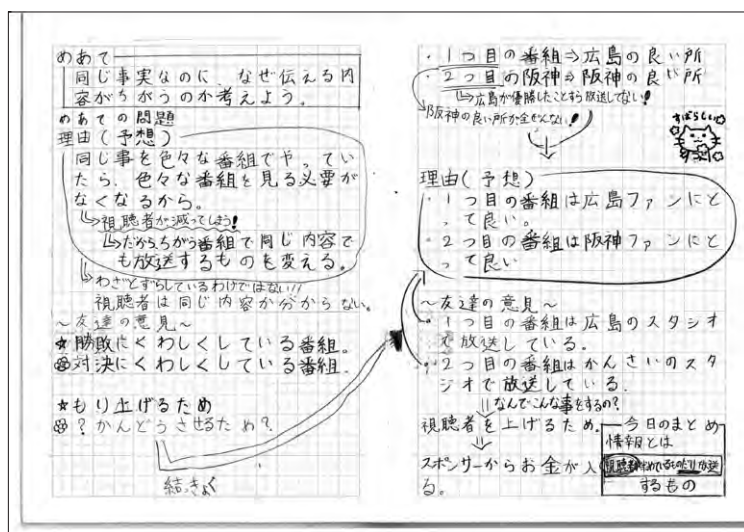 めあて
同じ事実なのに、なぜ伝える内
容がちがうのか考えよう。
めあての問題
理由(予想)
同じ事を色々な番組でやってい
たら、色々な番組を見る必要が
なくなるから。
↳視聴者が減ってしまう!
↳だからちがう番組で同じ内容で
も放送するものを変える。
↳わざとずらしているわけではない!!
視聴者は同じ内容か分からない。
～友達の意見～
☆勝敗にくわしくしている番組。
対決にくわしくしている番組。
☆もり上げるため
?かんどうさせるため?
結っきょく
・1つ目の番組⇒広島の良い所
・2つ目の阪神⇒阪神の良い所
↳広島が優勝したことすら放送してない!
阪神の良い所か全ぜんない!
すばらしい
理由(予想)
・1つ目の番組は広島ファンにと
って良い。
・2つ目の番組は阪神ファンにと
って良い
～友達の意見～
・1つ目の番組は広島のスタジオ
で放送している。
・2つ目の番組はかんさいのスタ
ジオで放送している.
なんでこんな事をするの?
視聴者を上げるため。
スポンサーからお金が入
る。
今日のまとめ
情報とは
視聴者
するもの